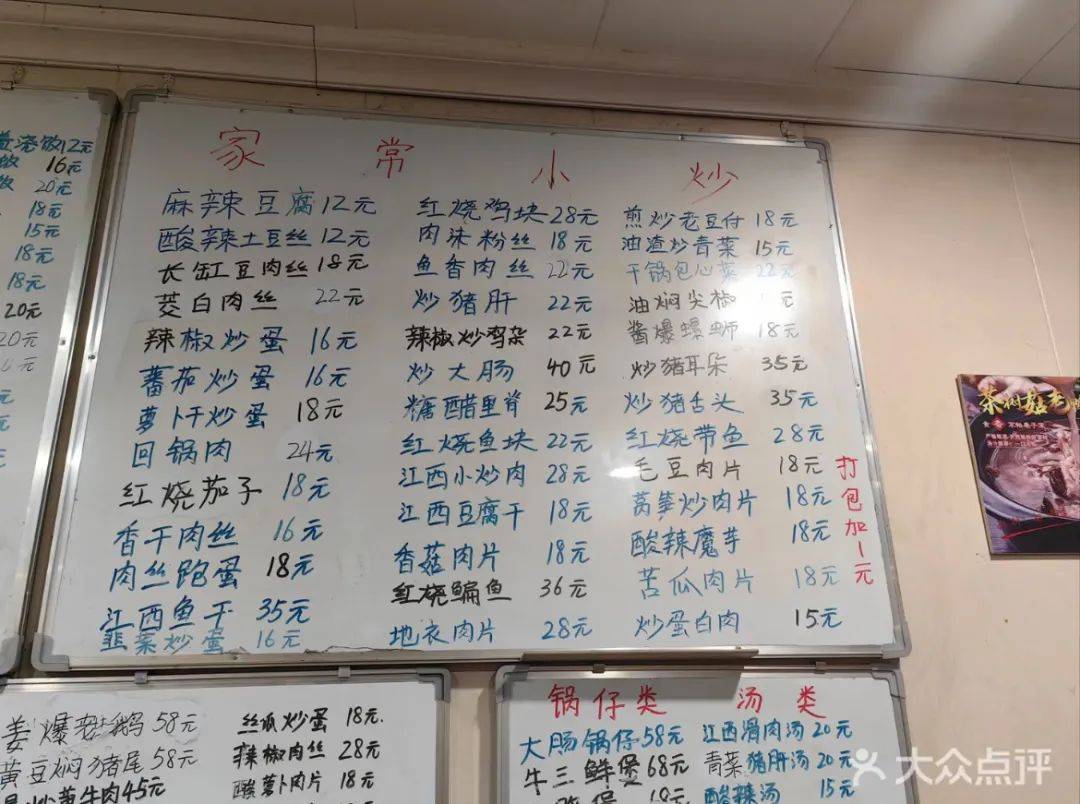 家常小炒
麻辣豆腐12元
酸辣土豆丝12元
长缸豆肉丝18元
茭白肉丝 22元
辣椒炒蛋 16元
蕃茄炒蛋 16元
萝卜干炒蛋 18元
回锅肉 24元
红烧茄子 18元
香干肉丝 16元
肉丝跑蛋 18元
江西鱼干 35元
韮菜炒蛋 16元
红烧鸡块28元
肉沫粉丝 18元
鱼香肉丝 22元
炒猪肝 22元
辣椒炒鸡杂 22元
炒大肠 40元
糖醋里脊 25元
红烧鱼块 22元
江西小炒肉 28元
江西豆腐干 18元
香菇肉片 18元
红烧鳊鱼 36元
地衣肉片 28元
煎炒老豆付 18元
油渣炒青菜 15元
干锅包心菜 22元
油焖尖椒 元
酱爆螺蛳 18元
炒猪耳朵 35元
炒猪舌头 35元
红烧带鱼 28元
毛豆肉片 18元
莴笋炒肉片 18元
酸辣魔芋 18元
苦瓜肉片 18元
炒蛋白肉 15元
打包加1元
12元
16元
20元
18元
15元
18元
18元
20元
20元
元
姜爆鹅58元
黄豆焖猪尾58元
炒黄牛肉45元
丝瓜炒蛋 18元
辣椒肉丝 28元
酸萝卜肉片 18元
锅仔类
大肠锅仔58元
牛三鲜煲68元
煲
汤类
江西滑肉汤20元
青菜猪肝汤20元
酸辣汤 15元
大众点评